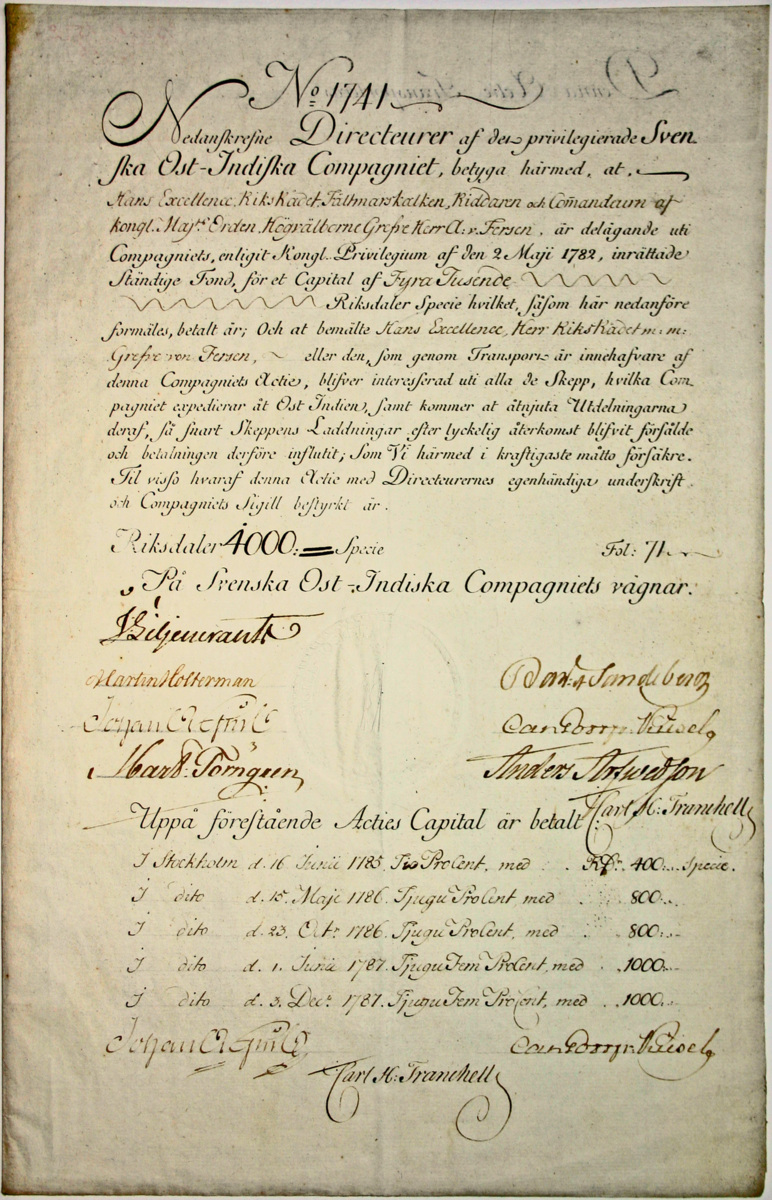 No. 1741
Nedanskrefne Directeurer af den privilegierade Sven-
ska Ost-Indiska Compagniet, betyga härmed, at
Hans Excellence, RiksRådet, Fältmarskalken, Riddaren och Comandeurn af
kongl. Majts Orden, Högvälborne Grefve Herr A. v. Fersen, är delägande uti
Compagniets, enligit Kongl. Privilegium af den 2 Maji 1782, inrättade
Ständige Fond, för et Capital af Fyra Tusende
Riksdaler Specie hvilket, såsom här nedanföre
formäles, betalt är; Och at bemälte Hans Excellence, Herr RiksRådet m: m:
Grefve von Fersen, eller den, som genom Transport är innehafvare af
denna Compagniets Actie, blifver interesserad uti alla de Skepp, hvilka Com-
pagniet expedierar åt Ost Indien, samt kommer at åtnjuta Utdelningarna
deraf, så snart Skeppens Laddningar efter lyckelig återkomst blifvit försålde
och betalningen derföre influtit; Som Vi härmed i kraftigaste måtto försäkre.
Til visso hvaraf denna Actie med Directeurernes egenhändiga underskrift
och Compagniets Sigill bestyrkt är.
Riksdaler 4000:= Specie Fol: 71
På Svenska Ost-Indiska Compagniets vägnar.
J Liljencrantz
Martin Holterman Bar. Sandeberg
Johan
Mart. Törngren Anders Arfwedson
Carl H: Tranchell
Uppå förestående Acties Capital är betalt:
I Stockholm d. 16 Junii 1785. Tio ProCent, med RDr. 400:.. Specie.
I dito d. 15. Maji 1786. Tjugu ProCent med 800:..
I dito d. 23. Octr 1786. Tjugu ProCent, med 800:..
I dito d. 1. Junii 1787. Tjugu Fem ProCent, med 1000:..
I dito d. 3. Decr. 1787. Tjugu Fem ProCent, med 1000:..
Johan
Carl H: Tranchell